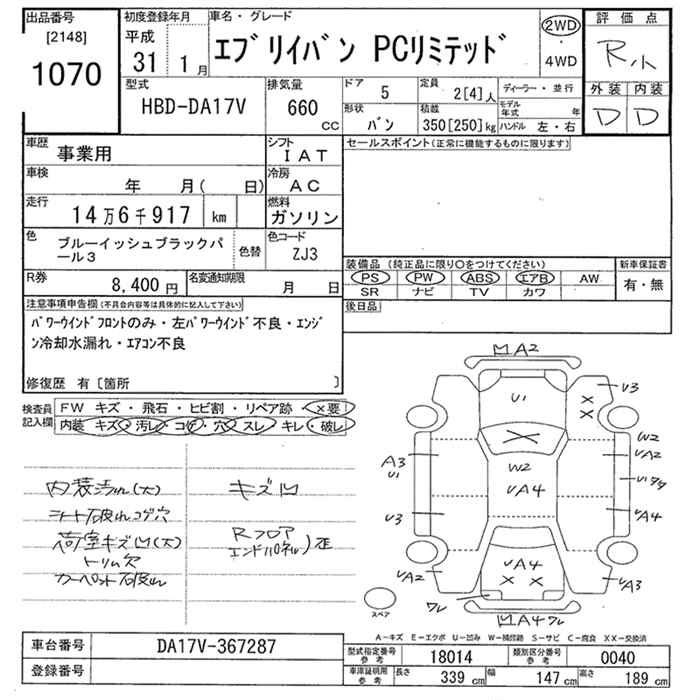 出品番号
[2148]
1070
初度登録年月
平成
31 1月
車名・グレード
エブリイバン PCリミテッド
2WD
・
4WD
評価点
R小
外装 内装
D D
型式
HBD-DA17V
排気量
660 CC
ドア 5
形状 バン
定員 2[4]人
積載 350[250]kg
ディーラー・並行
モデル年式 年
ハンドル 左・右
車歴 事業用
シフト IAT
車検 年 月( 日)
冷房 AC
走行 14万6千917 km
燃料 ガソリン
色 ブルーイッシュブラックパール3
色替
色コード ZJ3
R券 8,400円
名変通知期限 月 日
セールスポイント(正常に機能するものに限ります)
装備品(純正品に限り○をつけてください)
新車保証書
PS PW ABS エアB AW
SR ナビ TV カワ
有・無
後日品
注意事項申告欄(不具合内容等は具体的に記入して下さい)
パワーウインドフロントのみ・左パワーウインド不良・エンジ
ン冷却水漏れ・エアコン不良
修復歴 有[箇所 ]
検査員記入欄
FW キズ・飛石・ヒビ割・リペア跡・×要
内装 キズ・汚レ・コゲ・穴・スレ・キレ・破レ
内装汚れ(大)
シート破れコゲ穴
荷室キズ凹(大)
トリム穴
カーペット破れ
キズ凹
Rフロア
エンドパネル)歪
凹A2
U1
U3
×
×
×
W2
VA2
A3
U1
W2
VA4
U1ワレ
U3
VA4
VA4
× ×
VA2
VA3
ワレ
凹A4ワレ
スペア
A-キズ E-エクボ U-凹み W-補修跡 S-サビ C-腐食 XX-交換済
車台番号 DA17V-367287
登録番号
型式指定番号 参考 18014
類別区分番号 参考 0040
車庫証明用 参考
長さ 339 cm
幅 147 cm
高さ 189 cm